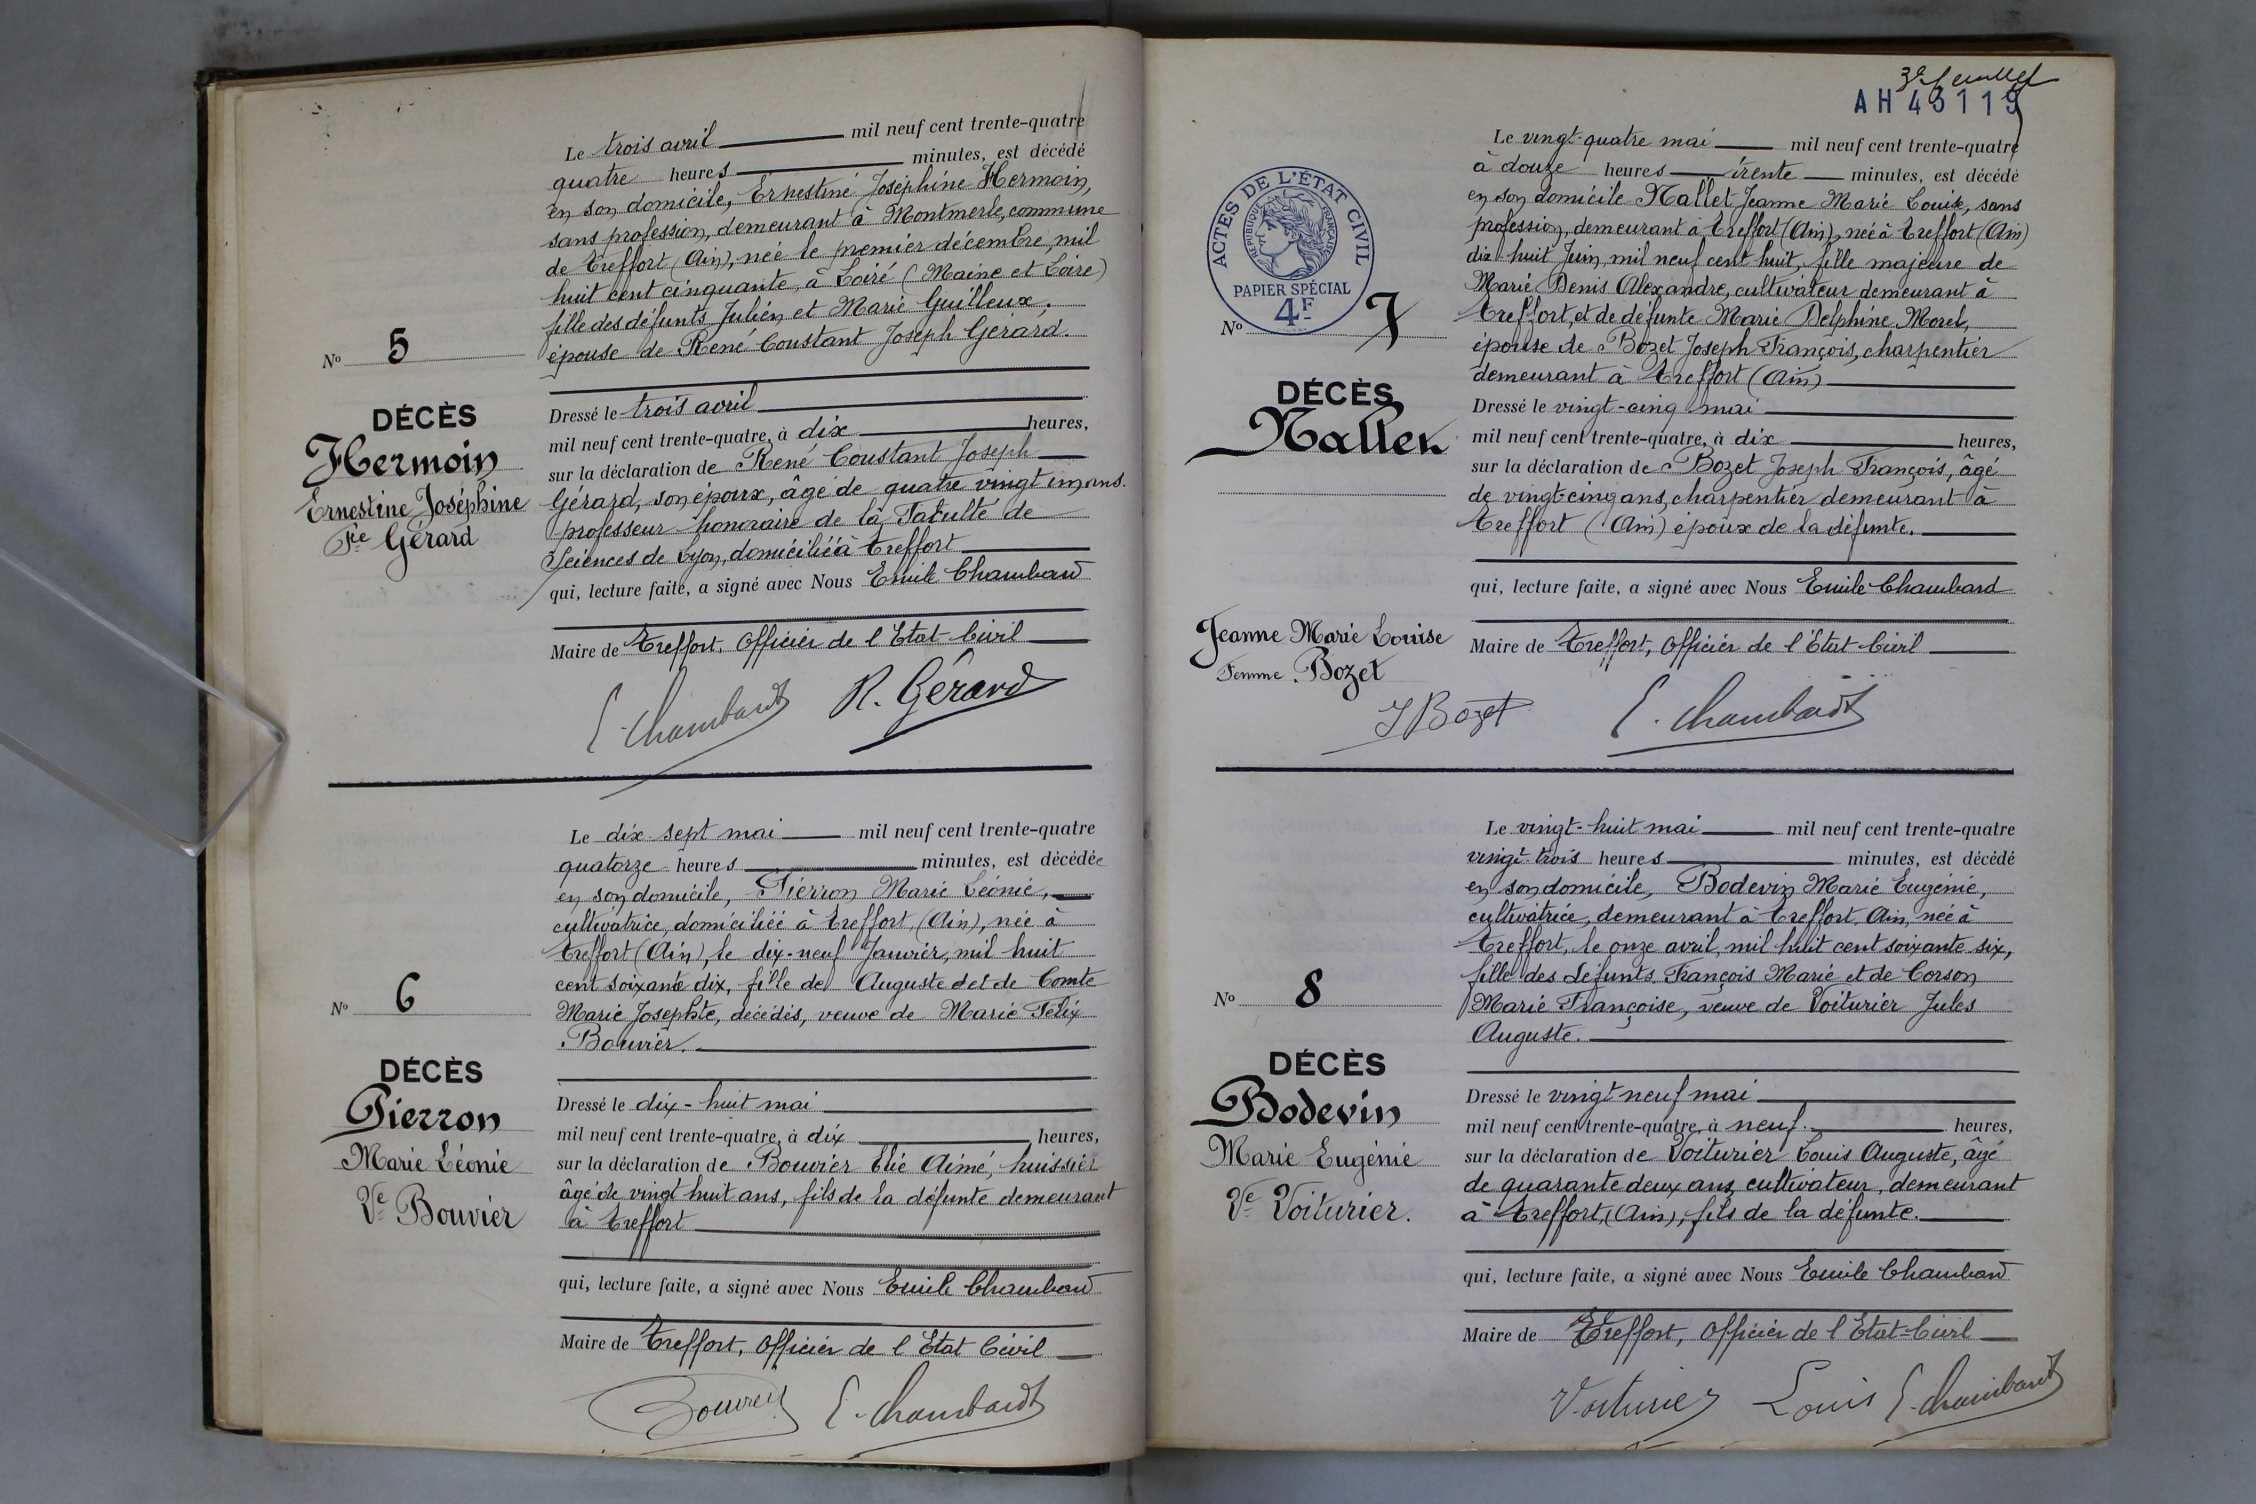 Le trois avril mil neuf cent trente-quatre
quatre heures minutes, est décédé
en son domicile, Ernestine Joséphine Hermoin,
sans profession, demeurant à Montmerle, commune
de Treffort (Ain), née le premier décembre, mil
huit cent cinquante, à Loiré (Maine et Loire)
fille des défunts Julien et Marie Guilleux.
épouse de René Constant Joseph Gérard.
No 5
DÉCÈS
Hermoin
Ernestine Joséphine
Fe Gérard
Dressé le trois avril
mil neuf cent trente-quatre, à dix heures,
sur la déclaration de René Constant Joseph
Gérard, son époux, âgé de quatre vingt un ans.
professeur honoraire de la Faculté de
Sciences de Lyon, domicilié à Treffort
qui, lecture faite, a signé avec Nous Emile Chambard
Maire de Treffort, Officier de l'Etat-Civil
E. Chambard R. Gérard
Le dix sept mai mil neuf cent trente-quatre
quatorze heures minutes, est décédée
en son domicile, Pierron Marie Léonie,
cultivatrice, domiciliée à Treffort (Ain), née à
Treffort (Ain), le dix-neuf Janvier, mil huit
cent soixante dix, fille de Auguste et de Comte
Marie Josephte, décédés, veuve de Marie Félix
Bouvier.
No 6
DÉCÈS
Pierron
Marie Léonie
Ve Bouvier
Dressé le dix-huit mai
mil neuf cent trente-quatre, à dix heures,
sur la déclaration de Bouvier Elie Aimé, huissier
âgé de vingt huit ans, fils de la défunte demeurant
à Treffort
qui, lecture faite, a signé avec Nous Emile Chambard
Maire de Treffort, Officier de l'Etat Civil
Bouvier E. Chambard
3e feuillet
AH 43119
ACTES DE L'ÉTAT CIVIL
RÉPUBLIQUE FRANÇAISE
PAPIER SPÉCIAL
4F
Le vingt-quatre mai mil neuf cent trente-quatre
à douze heures trente minutes, est décédé
en son domicile Mallet Jeanne Marie Louise, sans
profession, demeurant à Treffort (Ain), née à Treffort (Ain)
dix huit Juin, mil neuf cent huit, fille majeure de
Marie Denis Alexandre, cultivateur demeurant à
Treffort, et de défunte Marie Delphine Morel,
épouse de Bozet Joseph François, charpentier
demeurant à Treffort (Ain)
No 7
DÉCÈS
Mallet
Jeanne Marie Louise
Femme Bozet
Dressé le vingt-cinq mai
mil neuf cent trente-quatre, à dix heures,
sur la déclaration de Bozet Joseph François, âgé
de vingt-cinq ans, charpentier demeurant à
Treffort (Ain) époux de la défunte.
qui, lecture faite, a signé avec Nous Emile Chambard
Maire de Treffort, Officier de l'Etat-Civil
J Bozet E. Chambard
Le vingt-huit mai mil neuf cent trente-quatre
vingt-trois heures minutes, est décédé
en son domicile, Bodevin Marie Eugénie,
cultivatrice, demeurant à Treffort, Ain, née à
Treffort, le onze avril, mil huit cent soixante six,
fille des défunts François Marie et de Corson
Marie Françoise, veuve de Voiturier Jules
Auguste.
No 8
DÉCÈS
Bodevin
Marie Eugénie
Ve Voiturier.
Dressé le vingt neuf mai
mil neuf cent trente-quatre, à neuf. heures,
sur la déclaration de Voiturier Louis Auguste, âgé
de quarante deux ans, cultivateur, demeurant
à Treffort, (Ain), fils de la défunte.
qui, lecture faite, a signé avec Nous Emile Chambard
Maire de Treffort, Officier de l'Etat-Civil
Voiturier Louis E. Chambard